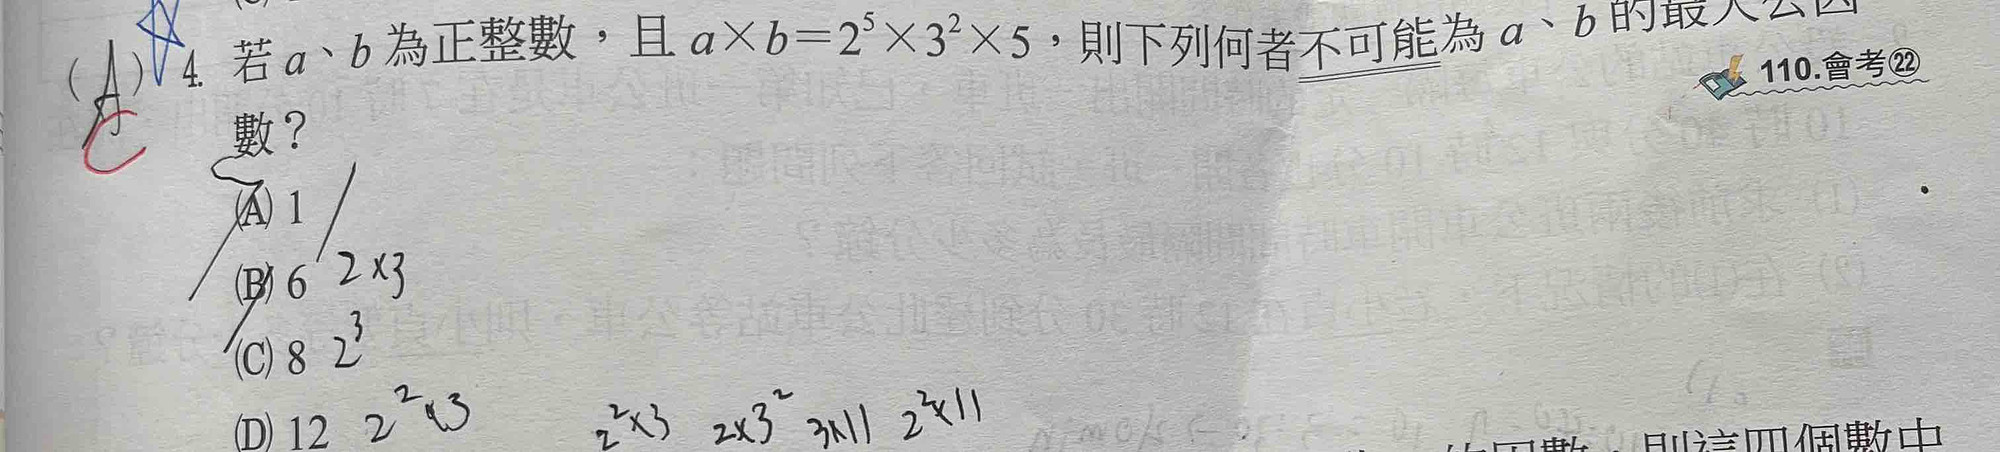 (A) 4. 若 a、b 為正整數，且 a×b＝2⁵×3²×5，則下列何者不可能為 a、b 的最大公因
數？
110.會考㉒
C
(A) 1
(B) 6 2×3
(C) 8 2³
(D) 12 2²×3 2²×3 2×3² 3×11 2²×11
的因數，則這四個數中